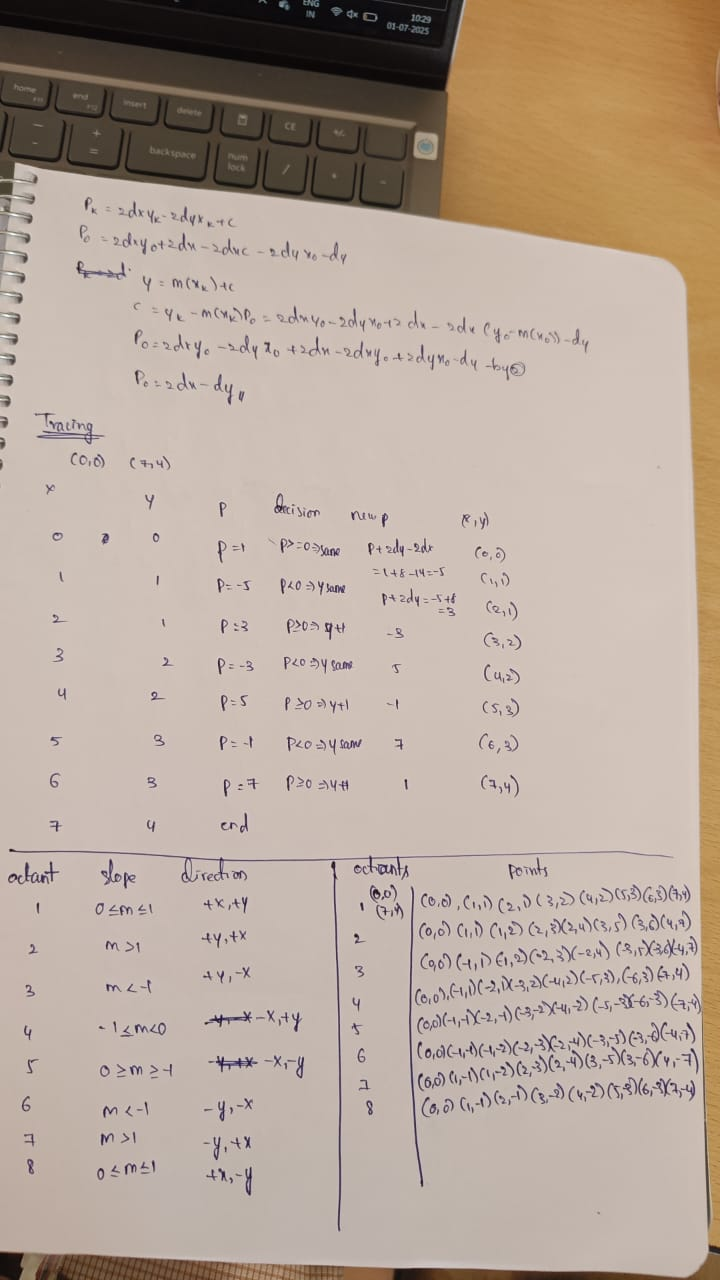 ENG
IN
10:29
01-07-2025
home
end
insert
delete
CE
+/-
backspace
num
lock
/
Pk = 2dxyk - 2dyxk + c
P0 = 2dxy0 + 2dx - 2dxc - 2dyx0 - dy
y = m(xk) + c
c = yk - m(xk) P0 = 2dxy0 - 2dyx0 + 2dx - 2dx (y0 - m(x0)) - dy
P0 = 2dxy0 - 2dyx0 + 2dx - 2dxy0 + 2dyx0 - dy
P0 = 2dx - dy //
Tracing
(0,0) (7,4)
x y P decision new p (x,y)
0 0 P=1 P>=0 => same P+2dy-2dx =1+8-14=-5 (0,0)
1 1 P=-5 P<0 => y same P+2dy=-5+8 =3 (1,1)
2 1 P=3 P≥0 => y+1 -3 (2,1)
3 2 P=-3 P<0 => y same 5 (3,2)
4 2 P=5 P≥0 => y+1 -1 (4,2)
5 3 P=-1 P<0 => y same 7 (5,3)
6 3 P=7 P≥0 => y+1 1 (6,3)
7 4 end (7,4)
octant slope direction
1 0≤m≤1 +x,+y
2 m>1 +y,+x
3 m<-1 +y,-x
4 -1≤m<0 -x,+y
5 0≥m≥-1 -x,-y
6 m<-1 -y,-x
7 m>1 -y,+x
8 0≤m≤1 +x,-y
octants points
(0,0)
1 (7,4) (0,0), (1,1) (2,1) (3,2) (4,2) (5,3) (6,3) (7,4)
2 (0,0) (1,1) (1,2) (2,3) (2,4) (3,5) (3,6) (4,7)
3 (0,0) (-1,1) (-1,2) (-2,3) (-2,4) (-3,5) (-3,6) (-4,7)
4 (0,0), (-1,1) (-2,1) (-3,2) (-4,2) (-5,3), (-6,3) (-7,4)
5 (0,0) (-1,-1) (-2,-1) (-3,-2) (-4,-2) (-5,-3) (-6,-3) (-7,-4)
6 (0,0) (-1,-1) (-1,-2) (-2,-3) (-2,-4) (-3,-5) (-3,-6) (-4,-7)
7 (0,0) (1,-1) (1,-2) (2,-3) (2,-4) (3,-5) (3,-6) (4,-7)
8 (0,0) (1,-1) (2,-1) (3,-2) (4,-2) (5,-3) (6,-3) (7,-4)